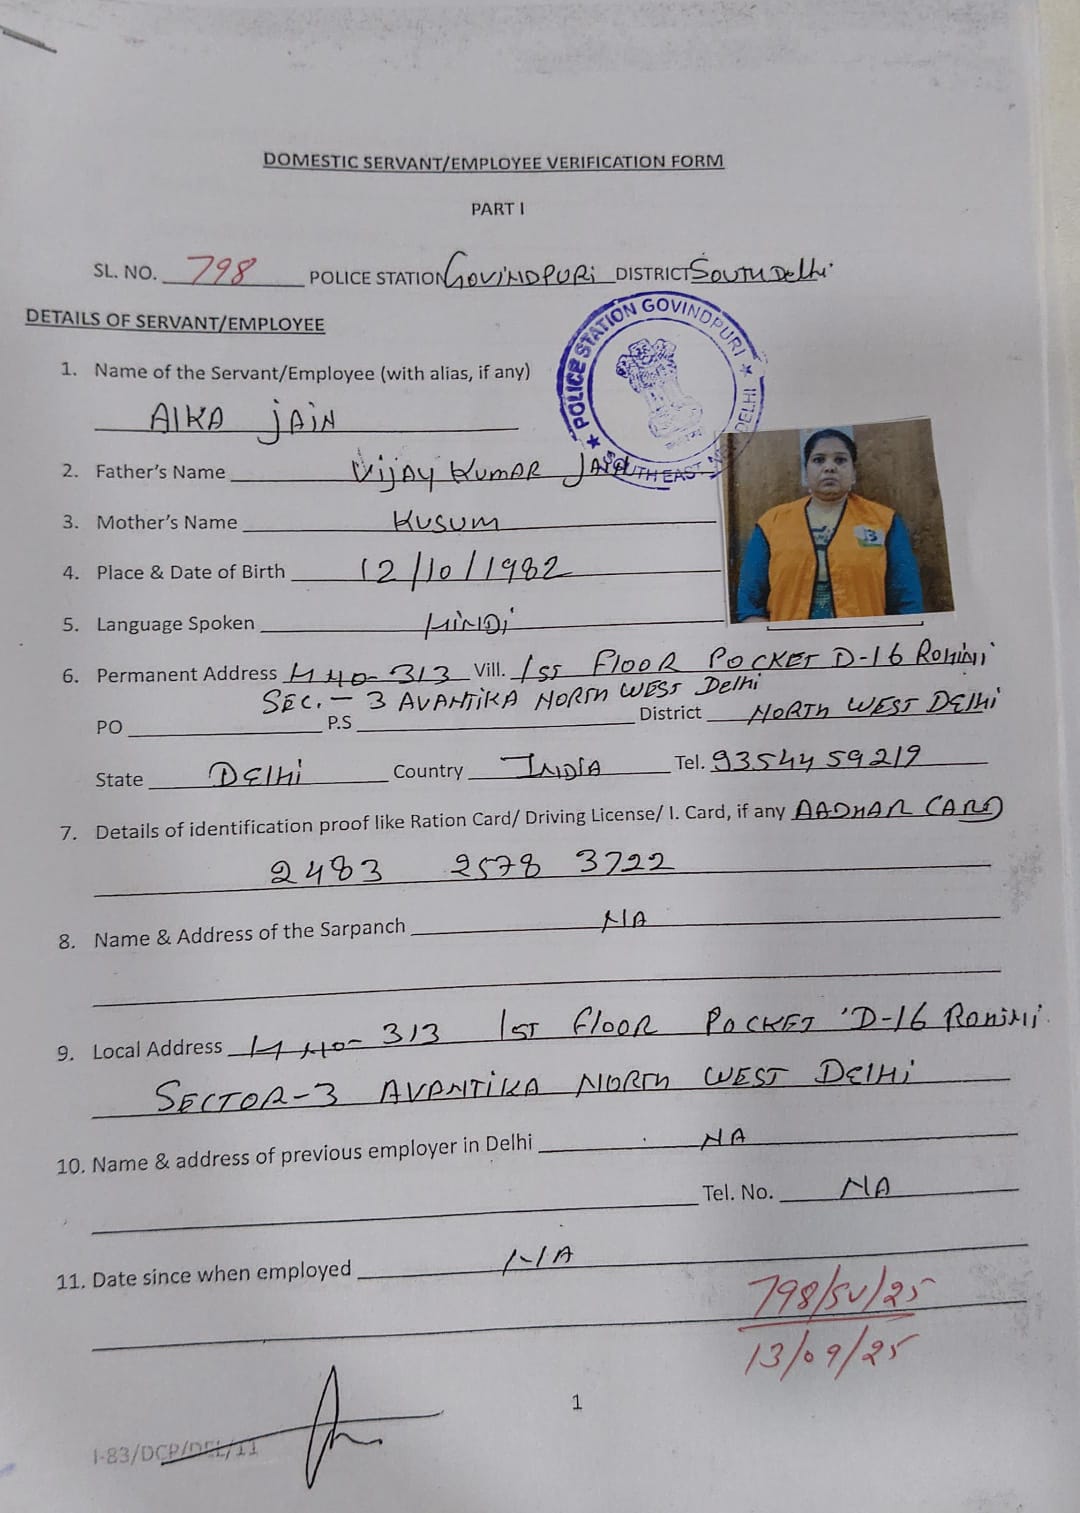 DOMESTIC SERVANT/EMPLOYEE VERIFICATION FORM
PART I
SL. NO. 798 POLICE STATION GOVINDPURI DISTRICT SOUTH Delhi
DETAILS OF SERVANT/EMPLOYEE
★ POLICE STATION GOVINDPURI ★ SOUTH EAST, NEW DELHI
1. Name of the Servant/Employee (with alias, if any)
AlKA JAIN
2. Father's Name Vijay KUMAR JAIN
3. Mother's Name KUSUM
4. Place & Date of Birth 12/10/1982
13
5. Language Spoken HINDi
6. Permanent Address H NO- 313 Vill. 1ST FlOOR POCKET D-16 ROHiNi
SEC. - 3 AVANTiKA NORTH WEST Delhi
PO P.S District NORTH WEST DElHi
State DElHi Country INDIA Tel. 9354459219
7. Details of identification proof like Ration Card/ Driving License/ I. Card, if any AADHAR CARD
2483 2578 3722
8. Name & Address of the Sarpanch NA
9. Local Address H NO- 313 1ST FlOOR POCKET 'D-16 ROHiNi
SECTOR-3 AVANTiKA NORTH WEST DElHi
10. Name & address of previous employer in Delhi NA
Tel. No. NA
11. Date since when employed N/A
798/SV/25
13/09/25
1
I-83/DCP/DEL/11